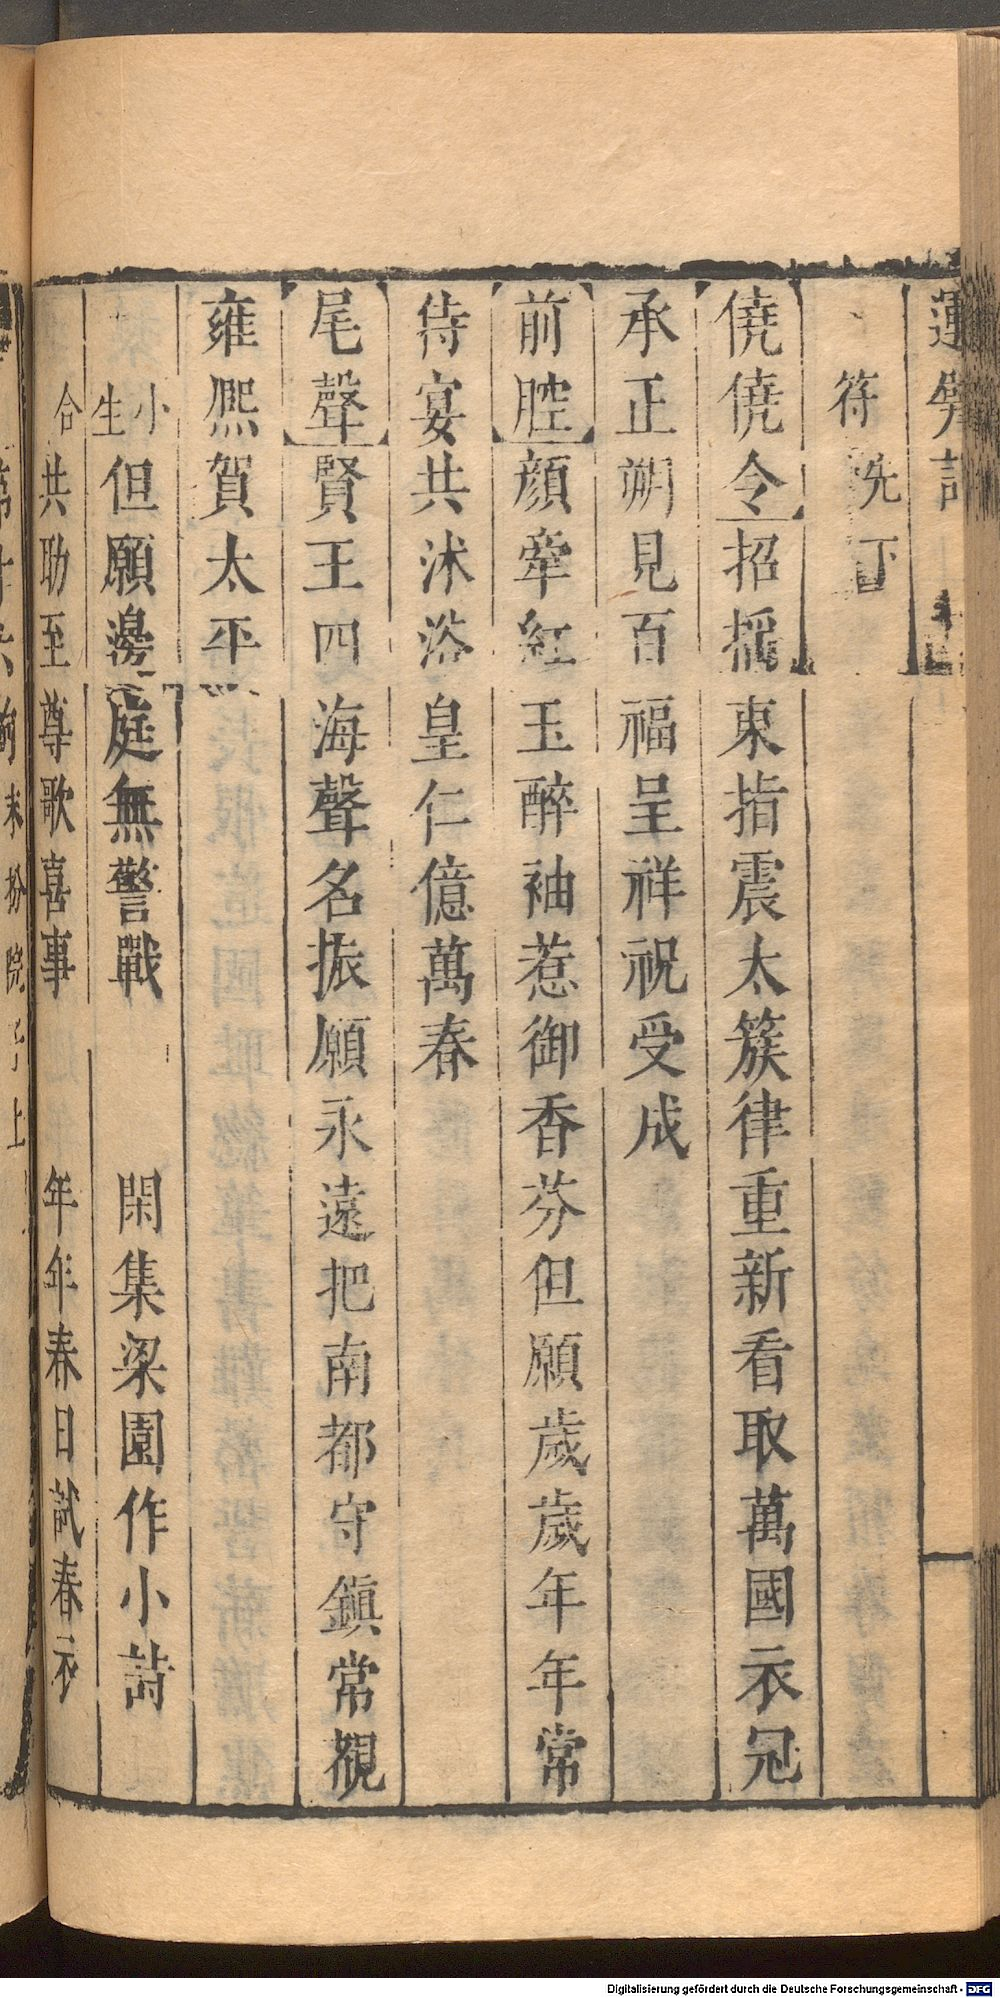 符 先下
僥僥令 招搖東指震太簇律重新看取萬國衣冠
承正朔見百福呈祥祝受成
前腔 顏牽紅玉醉袖惹御香芬但願歲歲年年常
侍宴共沐浴皇仁億萬春
尾聲 賢王四海聲名振願永遠把南都守鎮常覩
雍熙賀太平
小生 但願邊庭無警戰 閑集梁園作小詩
合 共助至尊歌喜事 年年春日試春衣
Digitalisierung gefördert durch die Deutsche Forschungsgemeinschaft - DFG